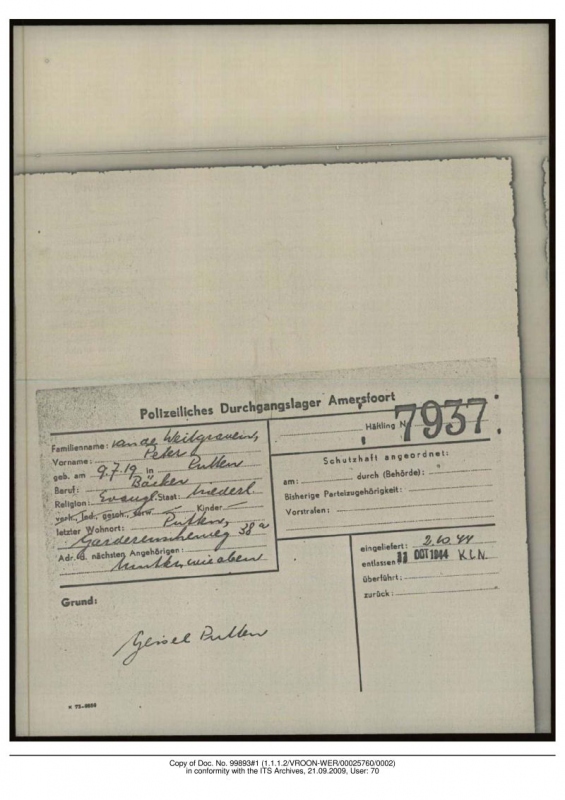 Polizeiliches Durchgangslager Amersfoort
Häftling N 7937
Familienname: van de
Vorname: Peter
geb. am 9.7.19 in Putten
Beruf: Bäcker
Religion: Evangl. Staat: Niederl.
verh., led., gesch., verw. — Kinder —
letzter Wohnort: Putten,
38a
Adr. d. nächsten Angehörigen:
wie oben
Schutzhaft angeordnet:
am: durch (Behörde):
Bisherige Parteizugehörigkeit:
Vorstrafen:
eingeliefert: 2.10.44
entlassen: 11 OCT 1944 K.L.N.
überführt:
zurück:
Grund:
Geisel Putten
Copy of Doc. No. 99893#1 (1.1.1.2/VROON-WER/00025760/0002)
in conformity with the ITS Archives, 21.09.2009, User: 70